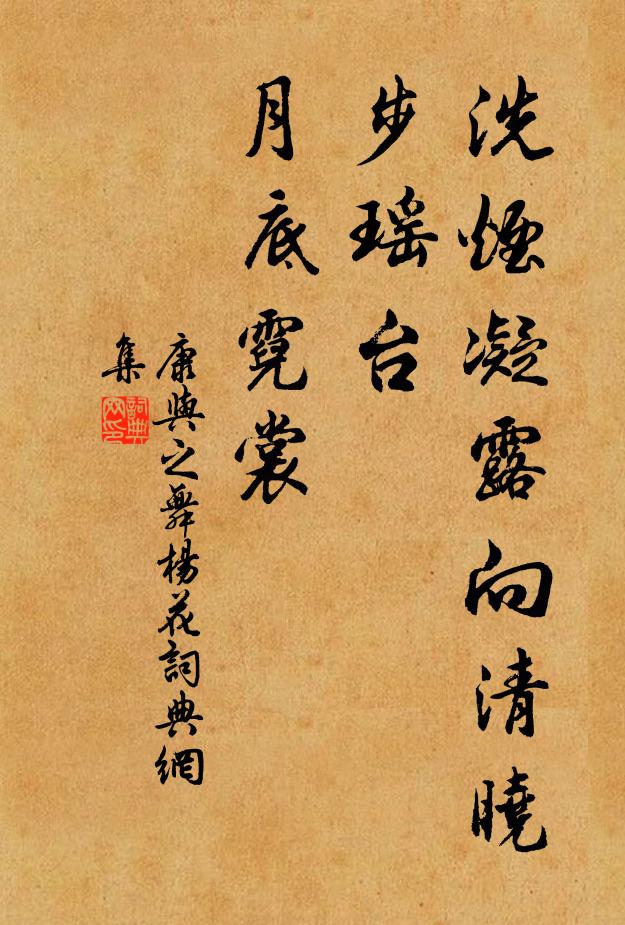 洗煙凝露向清曉
步瑶台
月底霓裳
康與之舞楊花詞典網
集
詞典網印